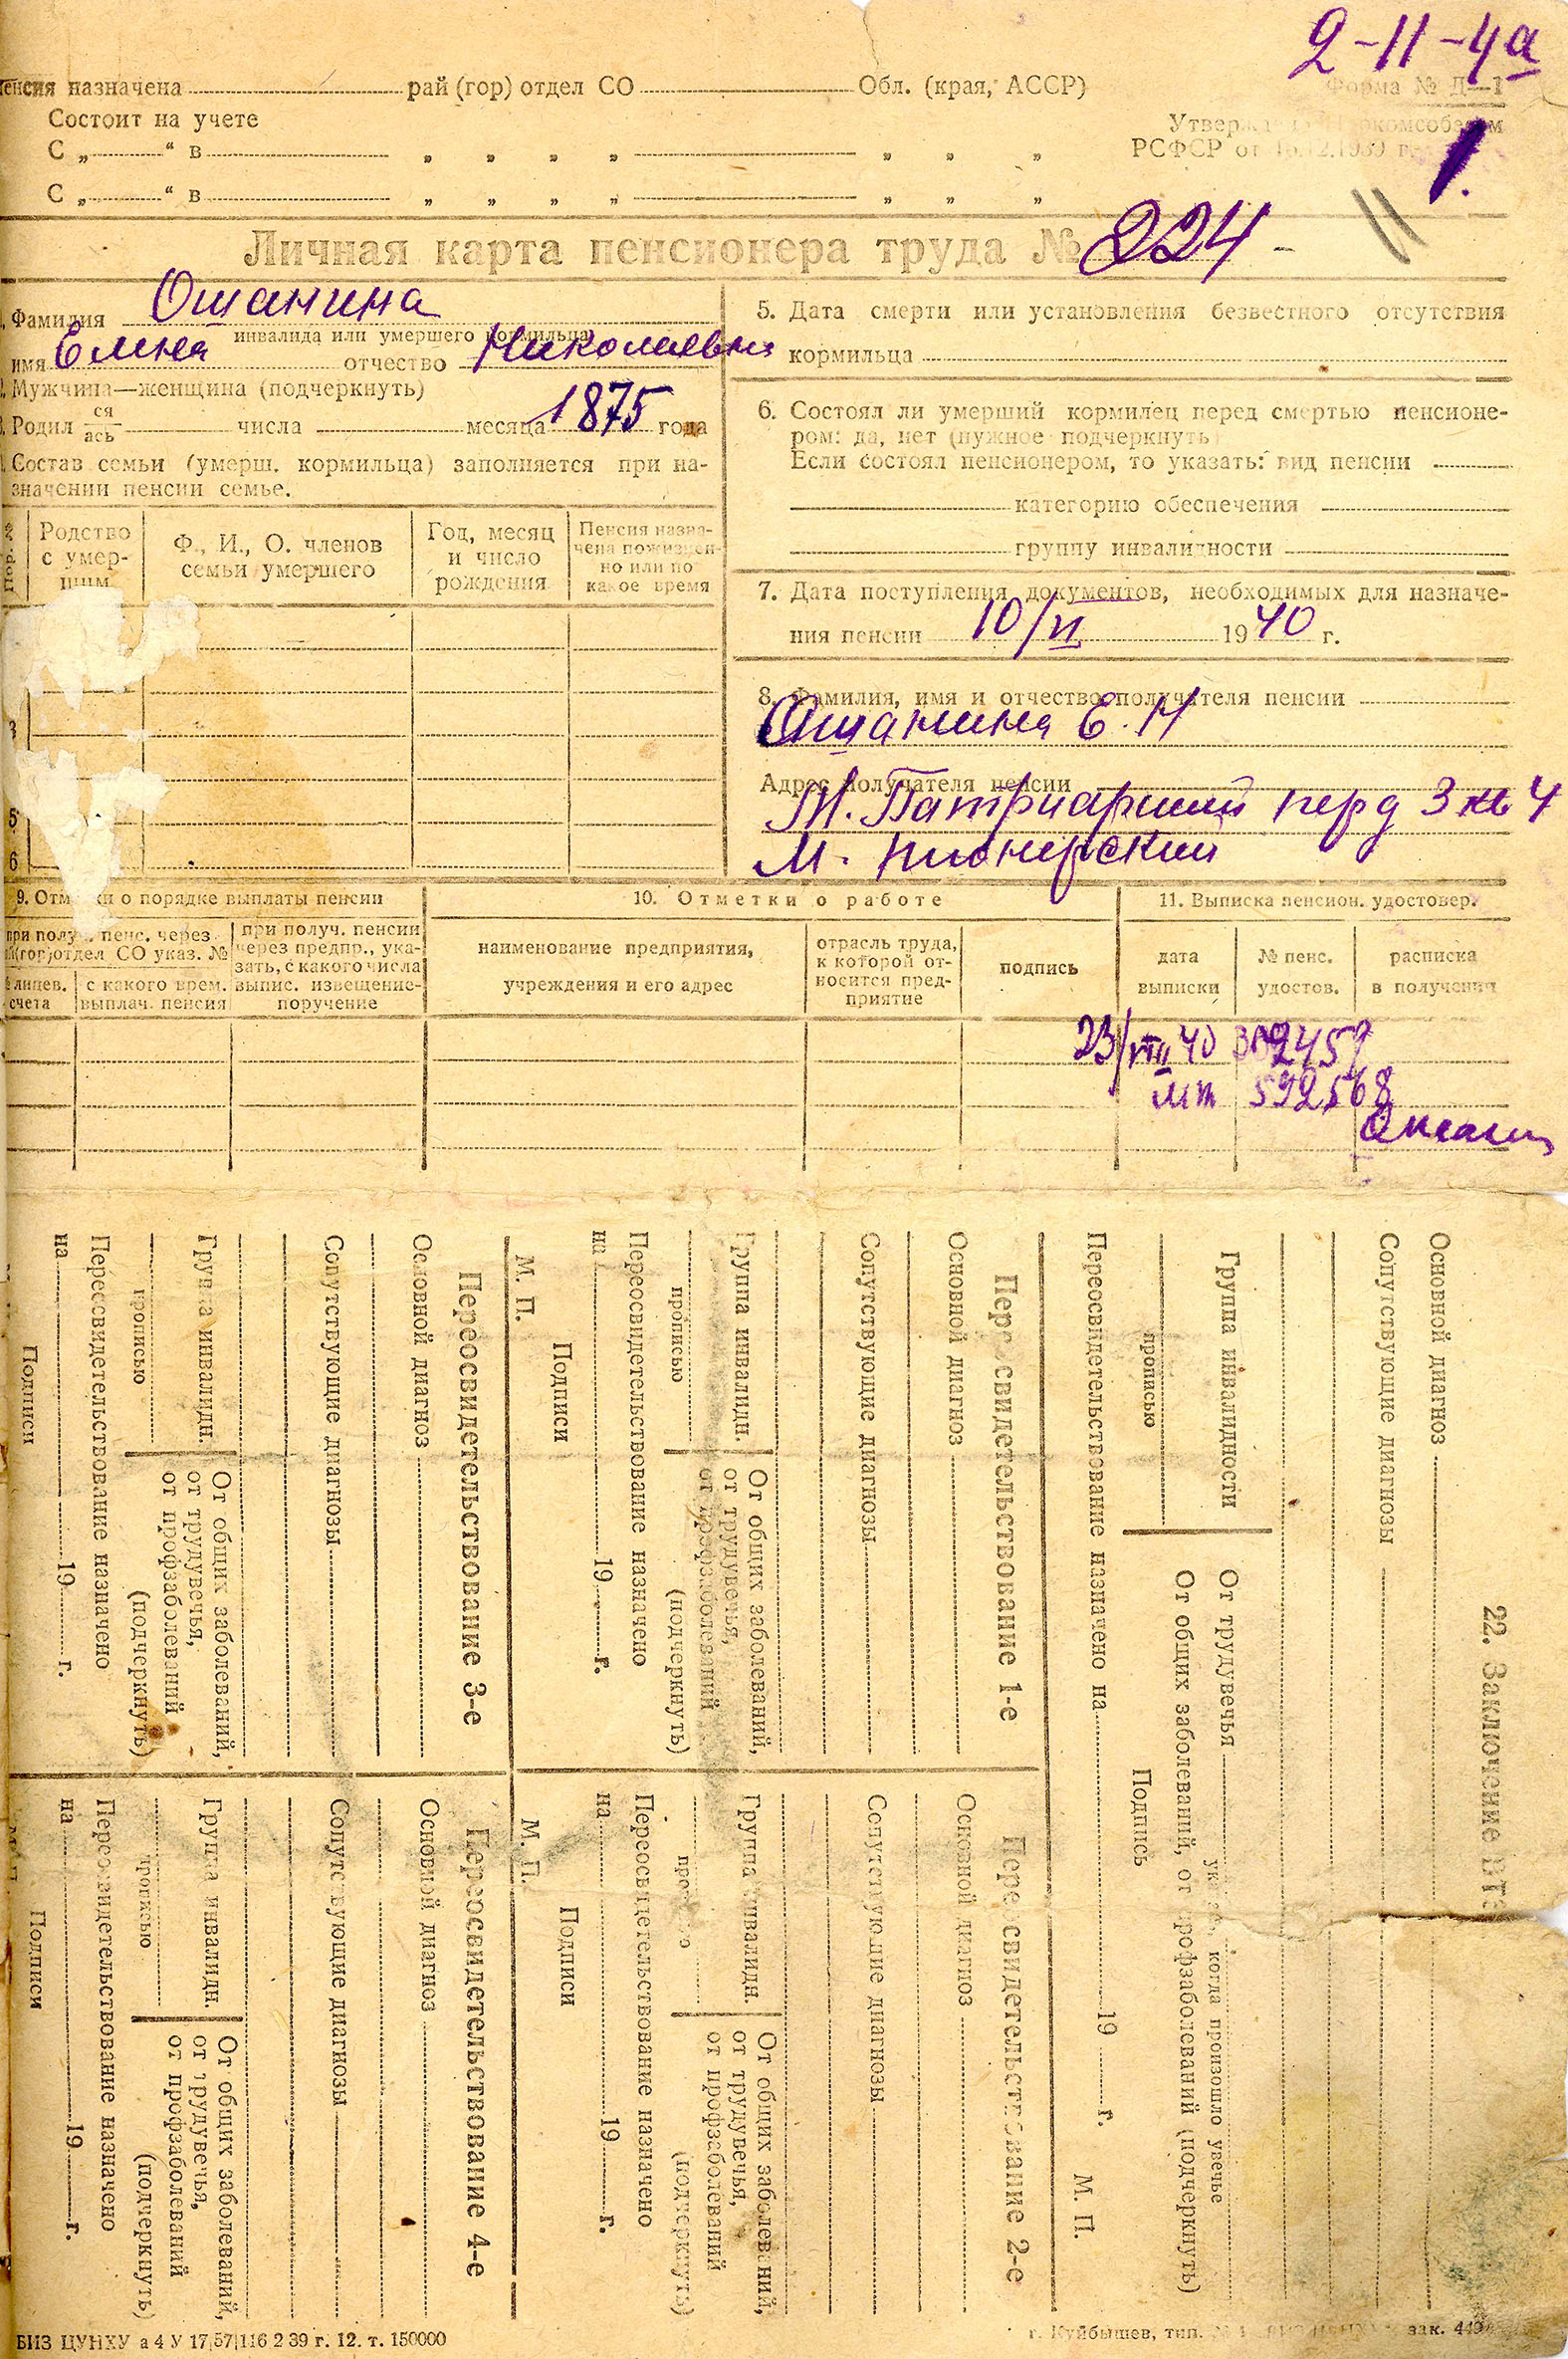 2-11-4а
Пенсия назначена рай (гор) отдел СО Обл. (края, АССР)
Форма № Д—1
Состоит на учете
Утвер
РСФСР от 15.12.1939 г.
С „ “ в „ „ „ „ „ „ „
1.
С „ “ в „ „ „ „ „ „ „
Личная карта пенсионера труда № 224 -
1. Фамилия Ошанина
инвалида или умершего кормильца
имя Елена отчество Николаевна
2. Мужчина—женщина (подчеркнуть)
3. Родил ся ась числа месяца 1875 года
4. Состав семьи (умерш. кормильца) заполняется при на-
значении пенсии семье.
Пор. №
Родство
с умер-
шим
Ф., И., О. членов
семьи умершего
Год, месяц
и число
рождения
Пенсия назна-
чена пожизнен-
но или по
какое время
3
5
6
5. Дата смерти или установления безвестного отсутствия
кормильца
6. Состоял ли умерший кормилец перед смертью пенсионе-
ром: да, нет (нужное подчеркнуть)
Если состоял пенсионером, то указать: вид пенсии
категорию обеспечения
группу инвалидности
7. Дата поступления документов, необходимых для назначе-
ния пенсии 10/VI 1940 г.
8. Фамилия, имя и отчество получателя пенсии
Ошанина Е. Н
Адрес получателя пенсии
М. Патриарший пер д 3 кв 4
М. Пионерский
9. Отметки о порядке выплаты пенсии
при получ. пенс. через
рай(гор)отдел СО указ. №
№ лицев.
счета
с какого врем.
выплач. пенсия
при получ. пенсии
через предпр., ука-
зать, с какого числа
выпис. извещение-
поручение
10. Отметки о работе
наименование предприятия,
учреждения и его адрес
отрасль труда,
к которой от-
носится пред-
приятие
подпись
11. Выписка пенсион. удостовер.
дата
выписки
№ пенс.
удостов.
расписка
в получении
23/VIII 40
592568
22. Заключение
Основной диагноз
Сопутствующие диагнозы
Группа инвалидности
прописью
От трудувечья
когда произошло увечье
От общих заболеваний, от профзаболеваний (подчеркнуть)
Подпись
Переосвидетельствование назначено на 19 г.
М. П.
Переосвидетельствование 1-е
Основной диагноз
Сопутствующие диагнозы
Группа инвалидн.
прописью
От общих заболеваний,
от трудувечья,
от профзаболеваний
(подчеркнуть)
Переосвидетельствование назначено
на 19 г.
Подписи
М. П.
Переосвидетельствование 2-е
Основной диагноз
Сопутствующие диагнозы
Группа инвалидн.
прописью
От общих заболеваний,
от трудувечья,
от профзаболеваний
(подчеркнуть)
Переосвидетельствование назначено
на 19 г.
Подписи
М. П.
Переосвидетельствование 3-е
Основной диагноз
Сопутствующие диагнозы
Группа инвалидн.
прописью
От общих заболеваний,
от трудувечья,
от профзаболеваний
(подчеркнуть)
Переосвидетельствование назначено
на 19 г.
Подписи
Переосвидетельствование 4-е
Основной диагноз
Сопутствующие диагнозы
Группа инвалидн.
прописью
От общих заболеваний,
от трудувечья,
от профзаболеваний
(подчеркнуть)
Переосвидетельствование назначено
на 19 г.
Подписи
М. П.
БИЗ ЦУНХУ а 4 У 17|57|116 2 39 г. 12. т. 150000
г. Куйбышев, тип. зак. 449